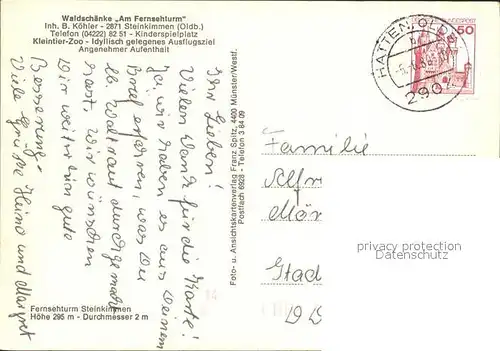 Waldschänke „Am Fernsehturm"
Inh. B. Köhler - 2871 Steinkimmen (Oldb.)
Telefon (04222) 82 51 - Kinderspielplatz
Kleintier-Zoo - Idyllisch gelegenes Ausflugsziel
Angenehmer Aufenthalt
Ihr Lieben!
Vielen Dank für die Karte!
Ja, wir haben es aus Deinem
Brief erfahren, was Du
lb. Waltraut durchgemacht
hast. Wir wünschen
Dir weiterhin gute
Besserung!
Viele Grüße Heino und Margret
Fernsehturm Steinkimmen
Höhe 295 m - Durchmesser 2 m
Foto- u. Ansichtskartenverlag Franz Spitz, 4400 Münster/Westf.
Postfach 6928 - Telefon 3 84 09
HATTEN, OLDB
290
50
Familie
Stad
privacy protection
Datenschutz